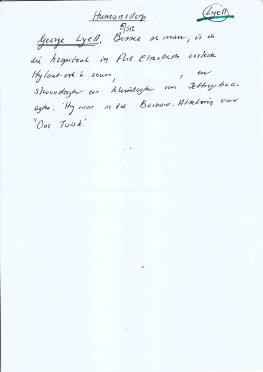 Humansdorp
Lyell
5/512
George Lyell, se man, is in
die hospitaal in Port Elizabeth oorlede
Hy laat ook 6 seuns, , en
skoondogter en kleindogter van Jeffreysbaai
agter. Hy was in die Afdeling van
"Ons Tuiste"